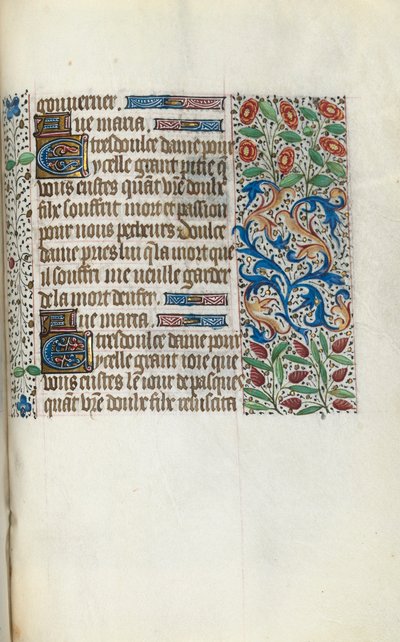 gouuerner.
Aue maria.
Et tresdoulce dame pour
ycelle grant pitie q̃
vous eustes quãt vr̃e doulx
filx souffrit mort et passion
pour nous pecheurs doulce
dame pries lui q̃ la mort que
il souffri me veulle garder
de la mort denfer.
Aue maria.
Et tresdoulce dame pour
ycelle grant ioie que
vous eustes le iour de pasques
quãt vr̃e doulx filx resuscita